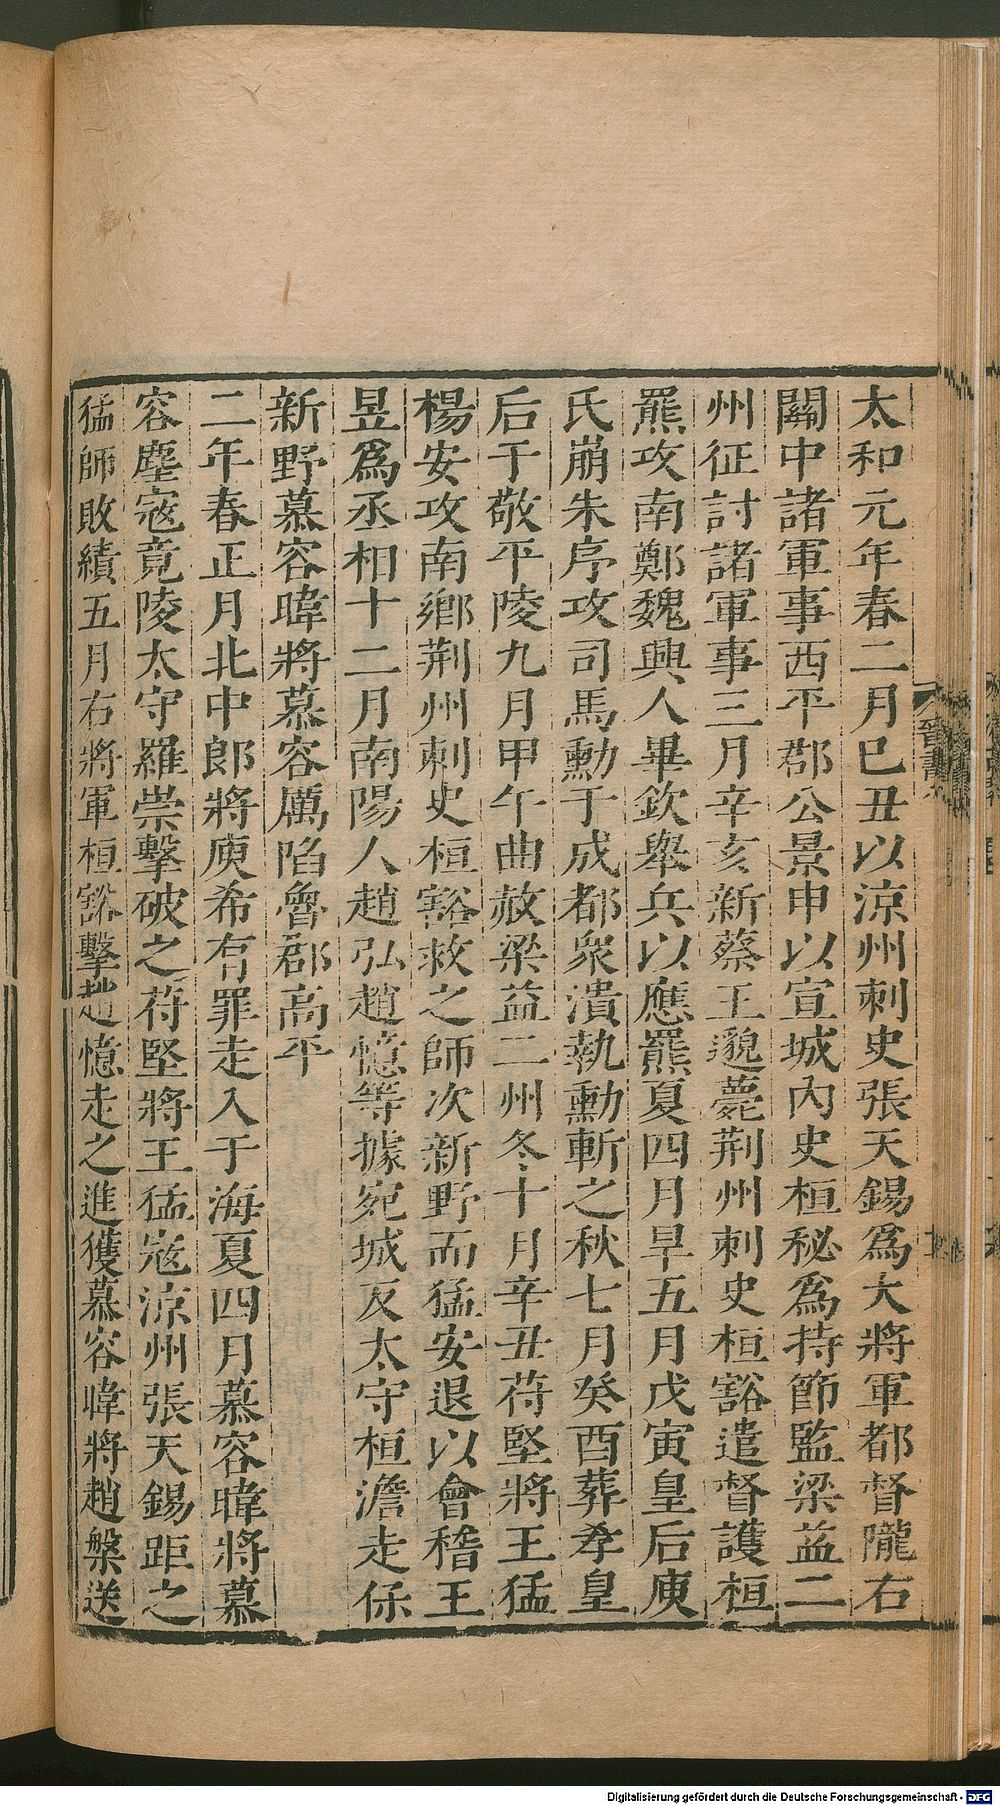 太和元年春二月巳丑以涼州刺史張天錫爲大將軍都督隴右
關中諸軍事西平郡公景申以宣城內史桓秘爲持節監梁益二
州征討諸軍事三月辛亥新蔡王邈薨荆州刺史桓豁遣督護桓
羆攻南鄭魏興人畢欽舉兵以應羆夏四月旱五月戊寅皇后庾
氏崩朱序攻司馬勳于成都衆潰執勳斬之秋七月癸酉葬孝皇
后于敬平陵九月甲午曲赦梁益二州冬十月辛丑苻堅將王猛
楊安攻南鄉荆州刺史桓豁救之師次新野而猛安退以會稽王
昱爲丞相十二月南陽人趙弘趙憶等據宛城反太守桓澹走保
新野慕容暐將慕容厲陷魯郡高平
二年春正月北中郎將庾希有罪走入于海夏四月慕容暐將慕
容塵寇竟陵太守羅崇擊破之苻堅將王猛寇涼州張天錫距之
猛師敗績五月右將軍桓豁擊趙憶走之進獲慕容暐將趙槃送
晉書
Digitalisierung gefördert durch die Deutsche Forschungsgemeinschaft - DFG